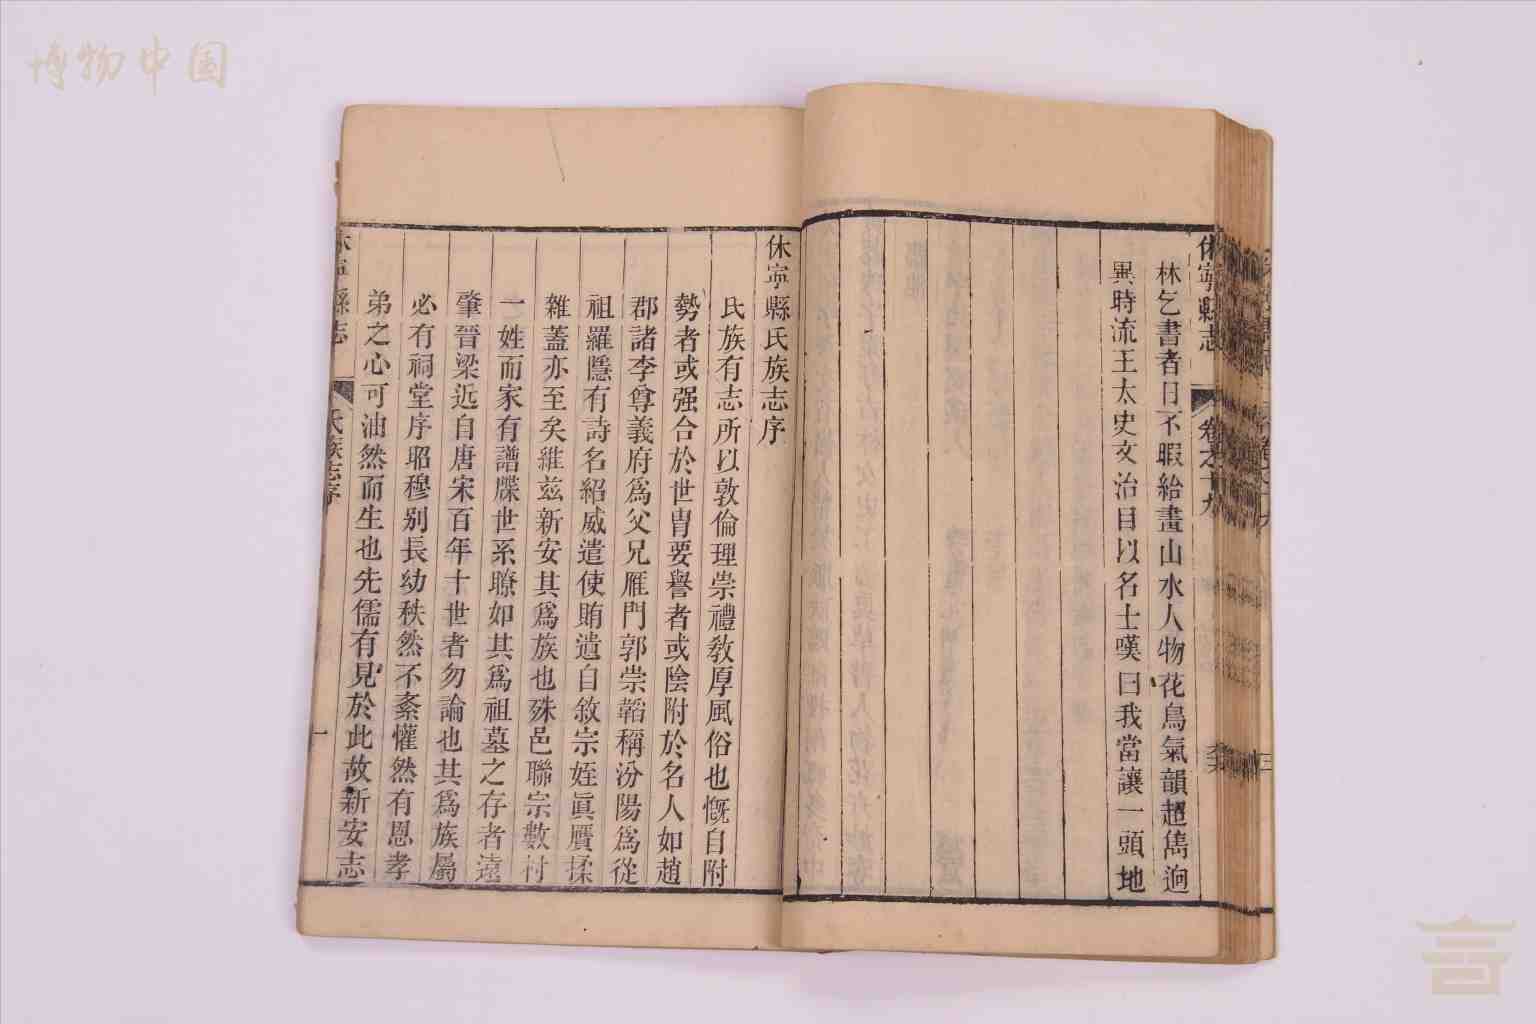 博物中国
休寧縣志
卷之十九
林乞書者日不暇給畫山水人物花鳥氣韻超雋迥
異時流王太史文治目以名士嘆曰我當讓一頭地
休寧縣氏族志序
氏族有志所以敦倫理崇禮教厚風俗也慨自附
勢者或强合於世冑要譽者或陰附於名人如趙
郡諸李尊義府為父兄雁門郭崇韜稱汾陽為從
祖羅隱有詩名紹威遣使賄遺自敘宗姪真贋揉
雜蓋亦至矣維茲新安其為族也殊邑聯宗數村
一姓而家有譜牒世系瞭如其為祖墓之存者遠
肇晉梁近自唐宋百年十世者勿論也其為族屬
必有祠堂序昭穆别長幼秩然不紊懽然有恩孝
弟之心可油然而生也先儒有見於此故新安志
休寧縣志
氏族志序
一